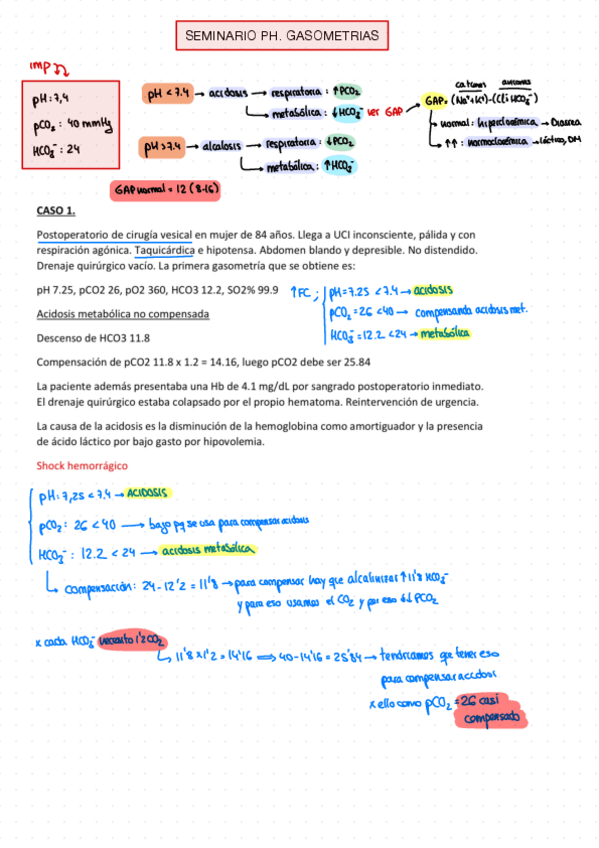 SEMINARIO PH. GASOMETRIAS
imp
pH: 7,4
pCO₂ : 40 mmHg
HCO₃⁻ : 24
pH < 7.4 → acidosis → respiratoria : ↑PCO₂
↳ metabólica : ↓HCO₃⁻ ver GAP
pH > 7.4 → alcalosis → respiratoria : ↓PCO₂
↳ metabólica : ↑HCO₃⁻
cationes aniones
GAP = (Na⁺+K⁺)-(Cl⁻+HCO₃⁻)
→ normal : hiperclorémica → Diarrea
→ ↑↑ : normoclorémica → láctica, DM
GAP normal = 12 (8-16)
CASO 1.
Postoperatorio de cirugía vesical en mujer de 84 años. Llega a UCI inconsciente, pálida y con
respiración agónica. Taquicárdica e hipotensa. Abdomen blando y depresible. No distendido.
Drenaje quirúrgico vacío. La primera gasometría que se obtiene es:
pH 7.25, pCO2 26, pO2 360, HCO3 12.2, SO2% 99.9
↑FC ; pH = 7.25 < 7.4 → acidosis
pCO₂ = 26 < 40 → compensando acidosis met.
HCO₃⁻ = 12.2 < 24 → metabólica
Acidosis metabólica no compensada
Descenso de HCO3 11.8
Compensación de pCO2 11.8 x 1.2 = 14.16, luego pCO2 debe ser 25.84
La paciente además presentaba una Hb de 4.1 mg/dL por sangrado postoperatorio inmediato.
El drenaje quirúrgico estaba colapsado por el propio hematoma. Reintervención de urgencia.
La causa de la acidosis es la disminución de la hemoglobina como amortiguador y la presencia
de ácido láctico por bajo gasto por hipovolemia.
Shock hemorrágico
pH: 7,25 < 7.4 → ACIDOSIS
pCO₂ : 26 < 40 → bajo pq se usa para compensar acidosis
HCO₃⁻ : 12.2 < 24 → acidosis metabólica
↳ compensación : 24 - 12'2 = 11'8 → para compensar hay que alcalinizar ↑11'8 HCO₃⁻
y para eso usamos el CO₂ y por eso ↓↓ PCO₂
x cada HCO₃⁻ necesito 1'2 CO₂
↳ 11'8 x 1'2 = 14'16 ⟹ 40 - 14'16 = 25'84 → tendríamos que tener eso
para compensar acidosi
x ello como pCO₂ = 26 casi
compensado